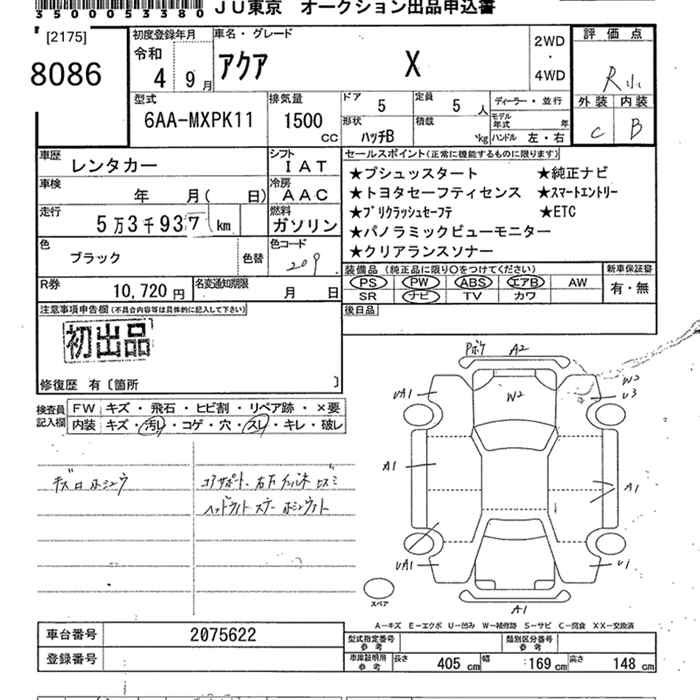 350005 3380 JU東京 オークション出品申込書
[2175]
8086
初度登録年月
令和
4 9月
車名・グレード
アクア X
2WD
・
4WD
評価点
R
外装 内装
C B
型式
6AA-MXPK11
排気量
1500 cc
ドア 5
定員 5 人
ディーラー・並行
形状 ハッチB
積載 kg
モデル年式 年
ハンドル 左・右
車歴 レンタカー
シフト IAT
車検 年 月( 日)
冷房 AAC
走行 5万3千937 km
燃料 ガソリン
色 ブラック
色替
色コード 209
R券 10,720円
名変通知期限 月 日
セールスポイント(正常に機能するものに限ります)
★プシュッスタート ★純正ナビ
★トヨタセーフティセンス ★スマートエントリー
★プリクラッシュセーフテ ★ETC
★パノラミックビューモニター
★クリアランスソナー
装備品(純正品に限り○をつけてください)
PS PW ABS エアB AW
SR ナビ TV カワ
新車保証書
有・無
後日品
注意事項申告欄(不具合内容等は具体的に記入して下さい)
初出品
修復歴 有〔箇所 〕
検査員記入欄
FW キズ・飛石・ヒビ割・リペア跡・×要
内装 キズ・汚レ・コゲ・穴・スレ・キレ・破レ
Pボケ A2
UA1 W2 W2
U3
A1 A1
UA1 U1
A1
スペア
A－キズ E－エクボ U－凹み W－補修跡 S－サビ C－腐食 XX－交換済
車台番号 2075622
登録番号
型式指定番号 参考
類別区分番号 参考
車庫証明用 参考
長さ 405 cm 幅 169 cm 高さ 148 cm